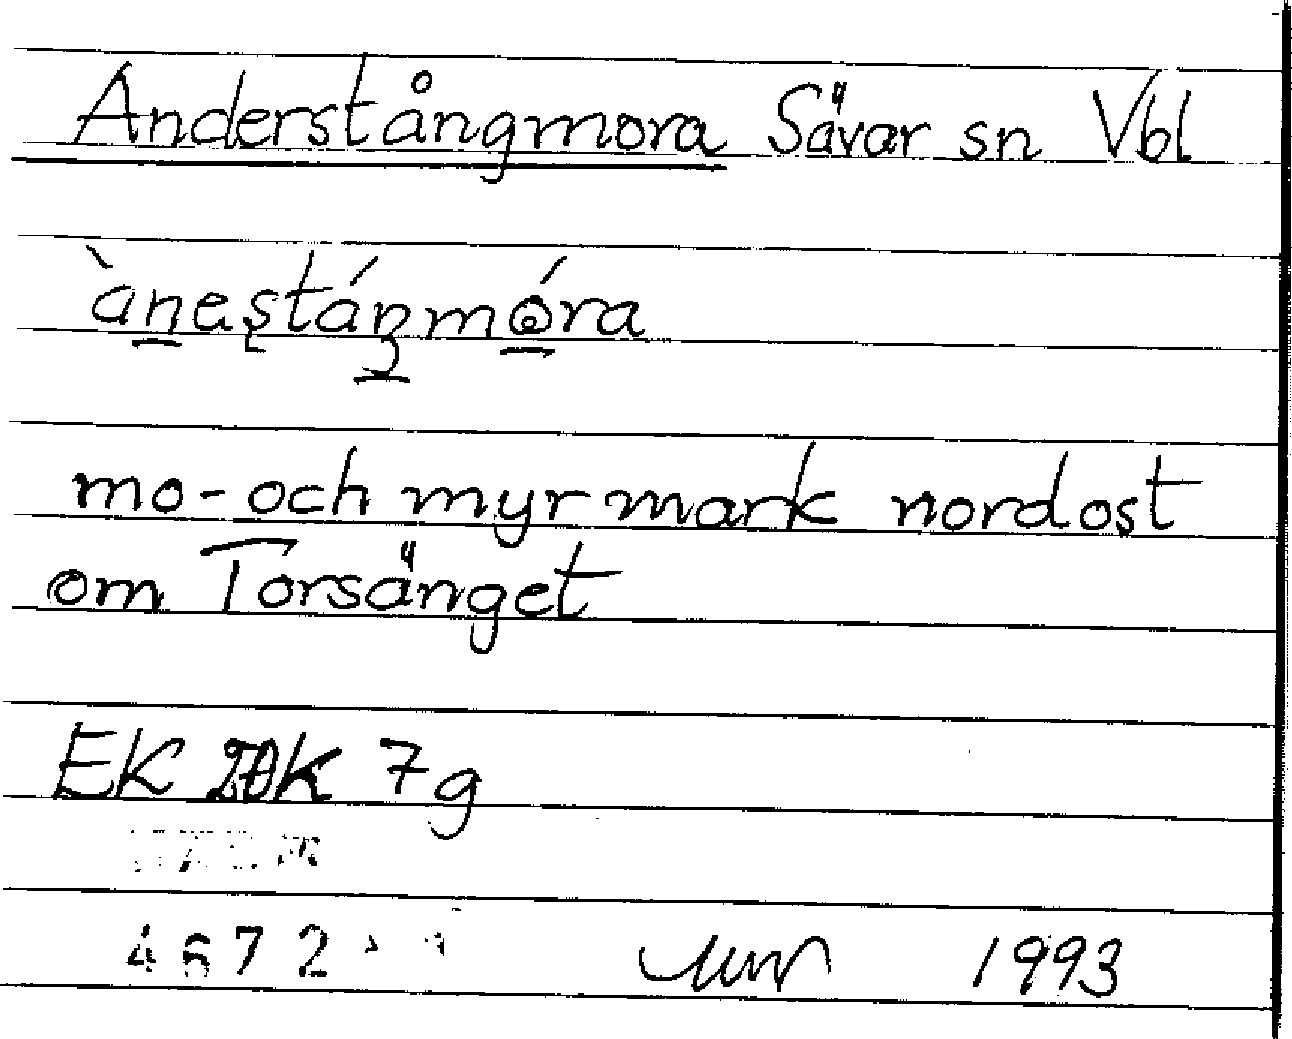 Anderstångmora Sävar sn Vbl
àneștáŋmóra
mo- och myrmark nordost
om Torsänget
EK 20K 7g
4672
1993